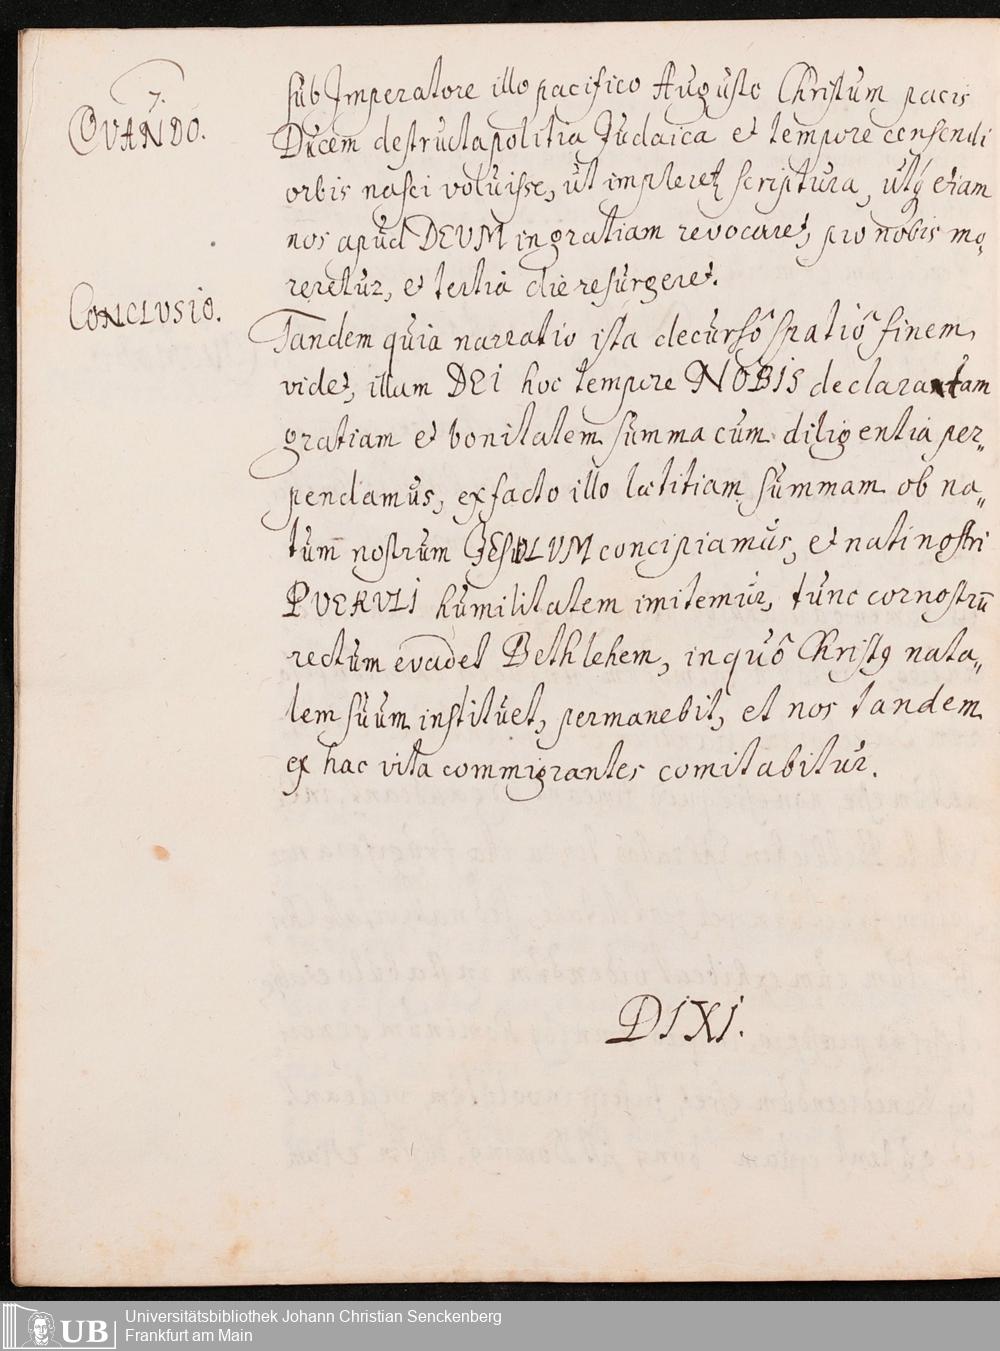 7.
QVANDO.
sub Imperatore illo pacifico Augusto Christum pacis
Ducem destructa politia Judaica et tempore censendi
orbis nasci voluisse, ut impleretꝫ scriptura, utqꝫ etiam
nos apud DEUM in gratiam revocaret, pro nobis mo„
reretur, et tertia die resurgeret.
CONCLVSIO.
Tandem quia narratio ista decursô spatiô finem
videt, illam DEI hoc tempore NOBIS declaratam
gratiam et bonitatem summa cum diligentia per„
pendamus, ex facto illo lætitiam summam ob na„
tum nostrum JESULVM concipiamus, et nati nostri
PUERULI humilitatem imitemur, tunc cor nostrū
rectum evadet Bethlehem, in quô Christꝰ nata„
lem suum instituet, permanebit, et nos tandem
ex hac vita commigrantes comitabitur.
DIXI.
UB
Universitätsbibliothek Johann Christian Senckenberg
Frankfurt am Main